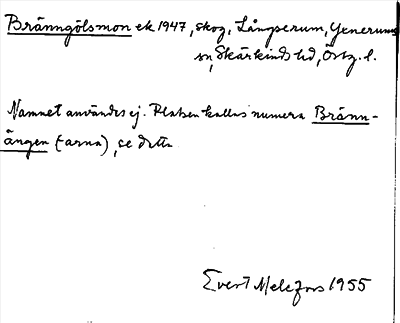 Bränngölsmon ek 1947, skog, Långserum, Yxnerums
sn, Skärkinds hd, Östg. l.
Namnet användes ej. Platsen kallas numera Bränn-
ängen (-arna), se detta
Evert Melefors 1955